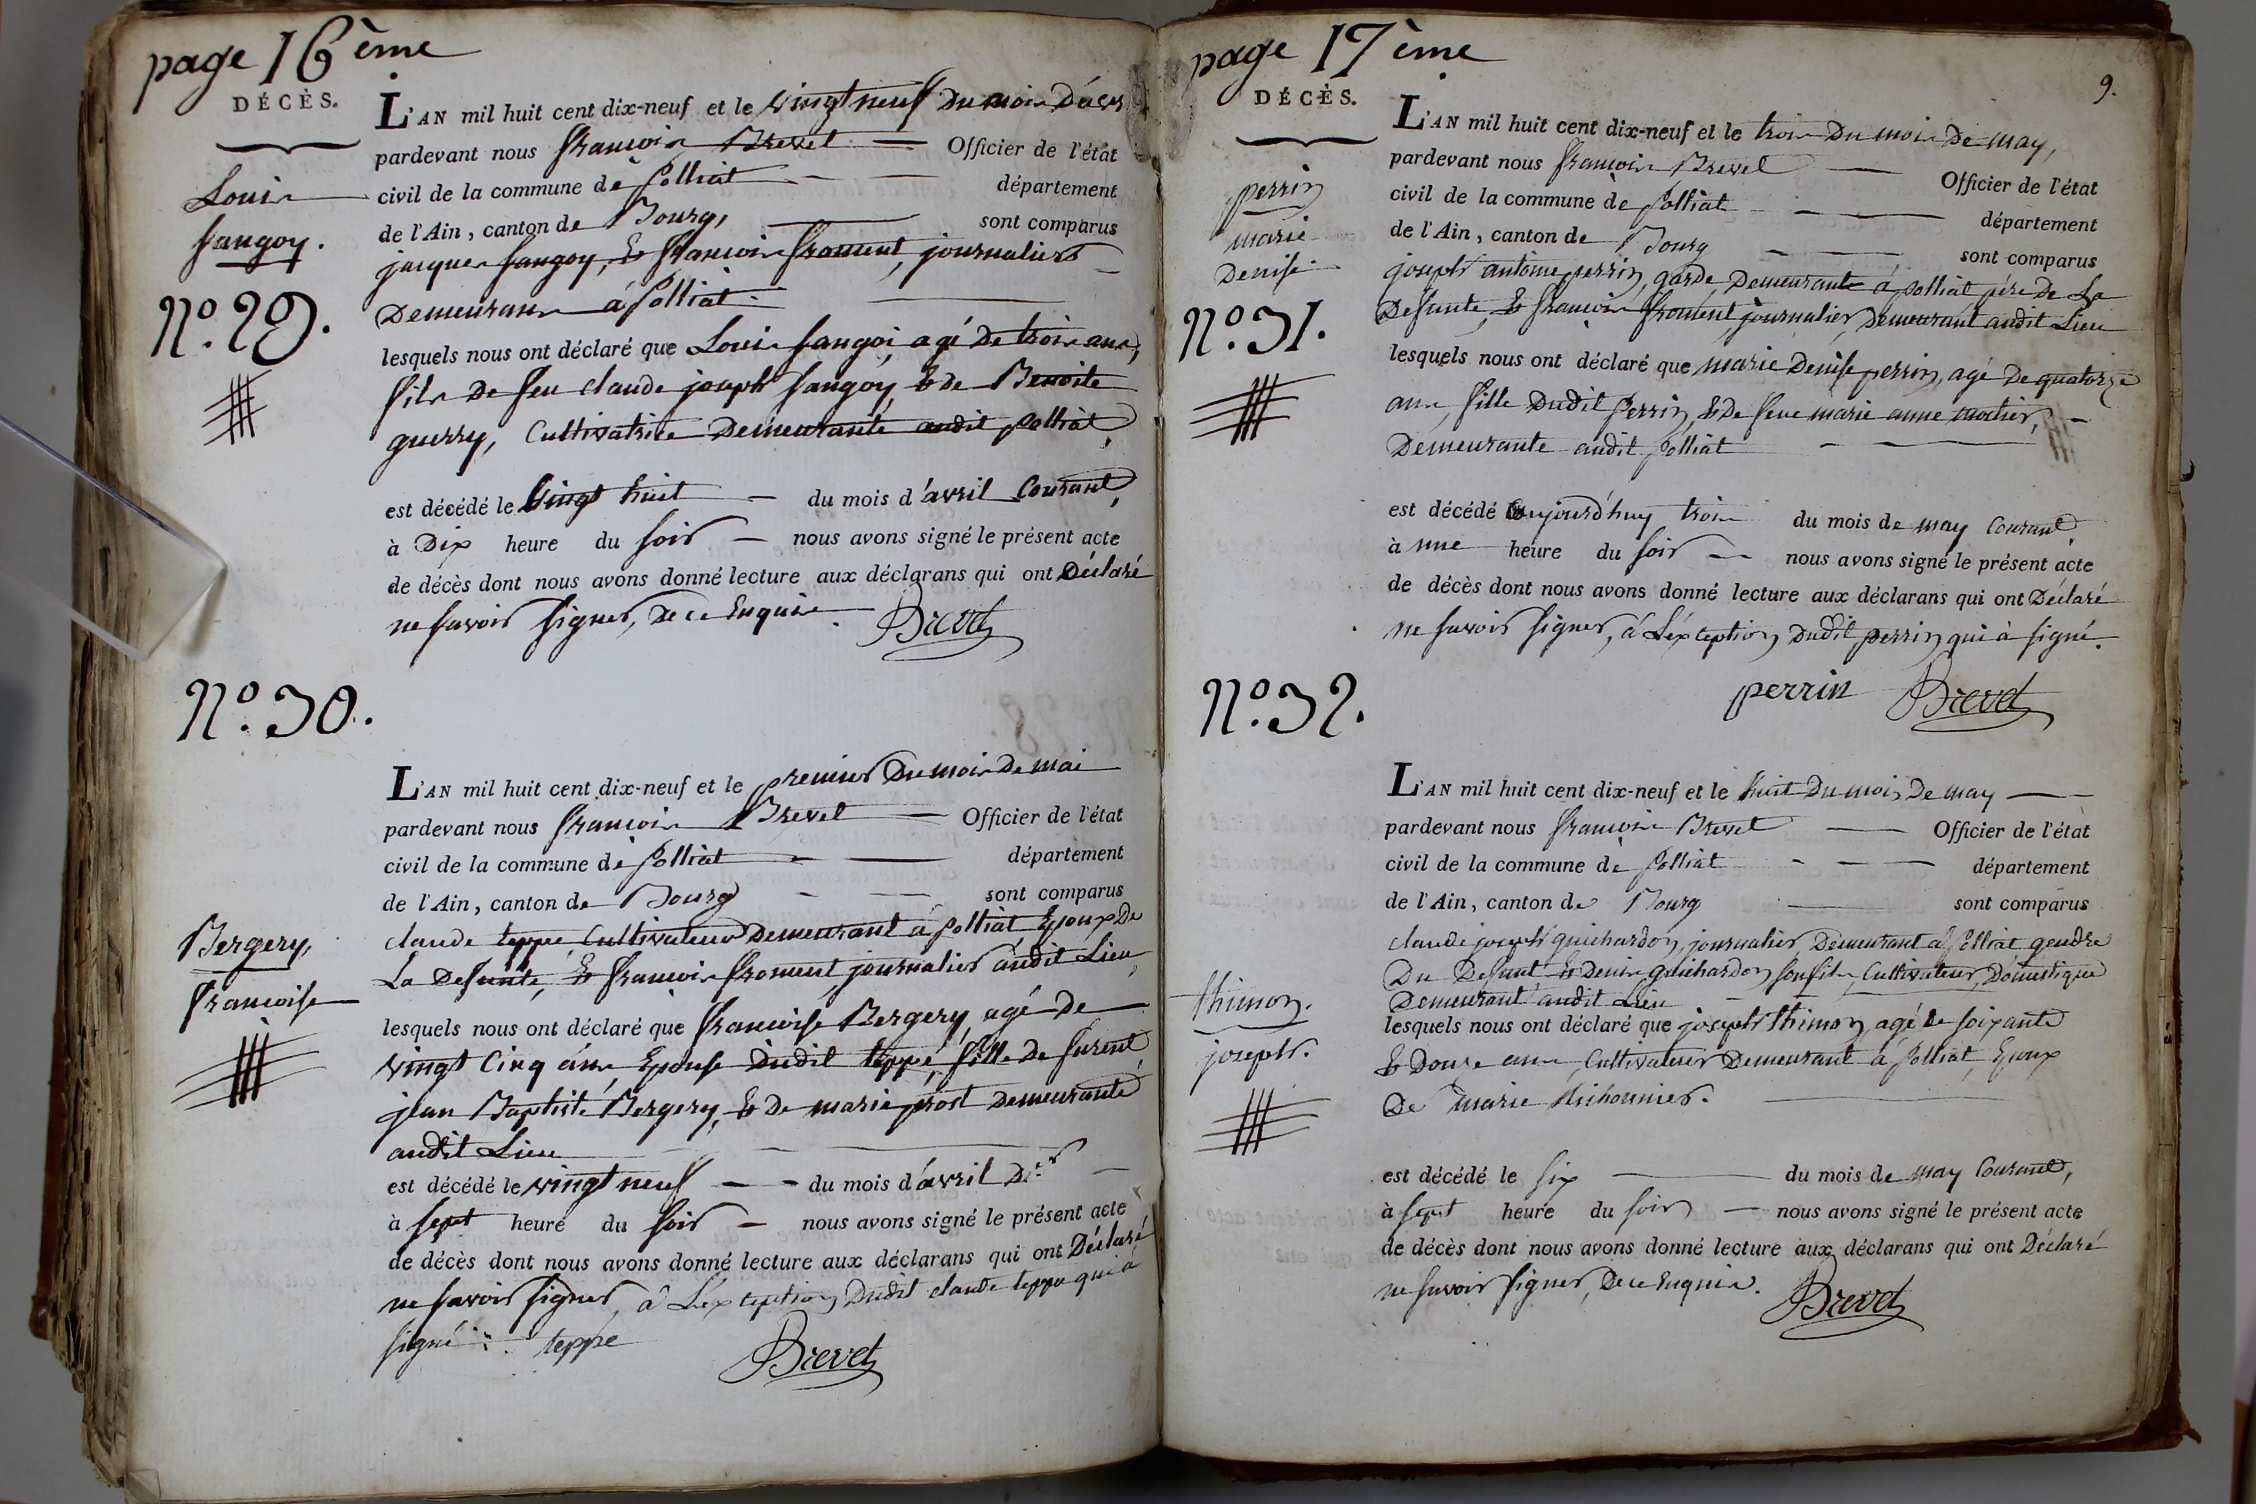 page 16ème
DÉCÈS.
Louis
sangoy.
N°. 29.
L'AN mil huit cent dix-neuf et le vingt neuf Du mois D'avril
pardevant nous françois Brevet — Officier de l'état
civil de la commune de Polliat — département
de l'Ain, canton de Bourg, — sont comparus
jacques sangoy, Et françois froment, journaliers
Demeurans á Polliat.
lesquels nous ont déclaré que Louis sangoi agé De trois ans,
fils De feu claude joseph sangoy, Et de Benoite
guerry, Cultivatrice Demeurante audit polliat,
est décédé le vingt huit — du mois d'avril Courant,
à Dix heure du soir — nous avons signé le présent acte
de décès dont nous avons donné lecture aux déclarans qui ont Déclaré
ne savoir signer, De ce Enquis. Brevet
N°. 30.
Bergery,
francoise
L'AN mil huit cent dix-neuf et le premier Du mois De mai
pardevant nous françois Brevet — Officier de l'état
civil de la commune de Polliat — département
de l'Ain, canton de Bourg — sont comparus
claude teppe Cultivateur Demeurant á Polliat Epoux De
La Defunte, Et françois froment journalier audit Lieu,
lesquels nous ont déclaré que francoise Bergery, agé de
vingt Cinq ans Epouse Dudit teppe, fille De furent
jean Baptiste Bergery, Et De marie prost Demeurante
audit Lieu
est décédé le vingt neuf — du mois d'avril D.er
à sept heure du soir — nous avons signé le présent acte
de décès dont nous avons donné lecture aux déclarans qui ont Déclaré
ne savoir signer, á L'exception Dudit claude teppe qui à
signé. teppe Brevet
page 17ème
9.
DÉCÈS.
perrin
marie
Denise.
N°. 31.
L'AN mil huit cent dix-neuf et le trois Du mois De may,
pardevant nous françois Brevet — Officier de l'état
civil de la commune de Polliat — département
de l'Ain, canton de Bourg — sont comparus
joseph antoine perrin, garde, Demeurante á polliat pére De La
Defunte, Et françois froment, journalier, Demeurant audit Lieu
lesquels nous ont déclaré que marie Denise perrin, agé De quatorze
ans, fille Dudit Perrin, Et De feue marie anne mortier,
Demeurante audit Polliat
est décédé aujourd'huy trois du mois de may Courant.
à une heure du soir — nous avons signé le présent acte
de décès dont nous avons donné lecture aux déclarans qui ont Déclaré
ne savoir signer, á L'éxception Dudit perrin qui à signé.
perrin Brevet
N°. 32.
thimon.
joseph.
L'AN mil huit cent dix-neuf et le huit Du mois De may —
pardevant nous françois Brevet — Officier de l'état
civil de la commune de Polliat — département
de l'Ain, canton de Bourg — sont comparus
claude joseph guichardon, journalier, Demeurant á Polliat gendre
Du Defunt Et Denis guichardon son fils, Cultivateur, Domestique
Demeurant audit Lieu
lesquels nous ont déclaré que joseph thimon, agé De soixante
Et Douze ans, Cultivateur Demeurant á Polliat, Epoux
De marie
est décédé le six — du mois de may Courant,
à sept heure du soir — nous avons signé le présent acte
de décès dont nous avons donné lecture aux déclarans qui ont Déclaré
ne savoir signer, De ce Enquis. Brevet